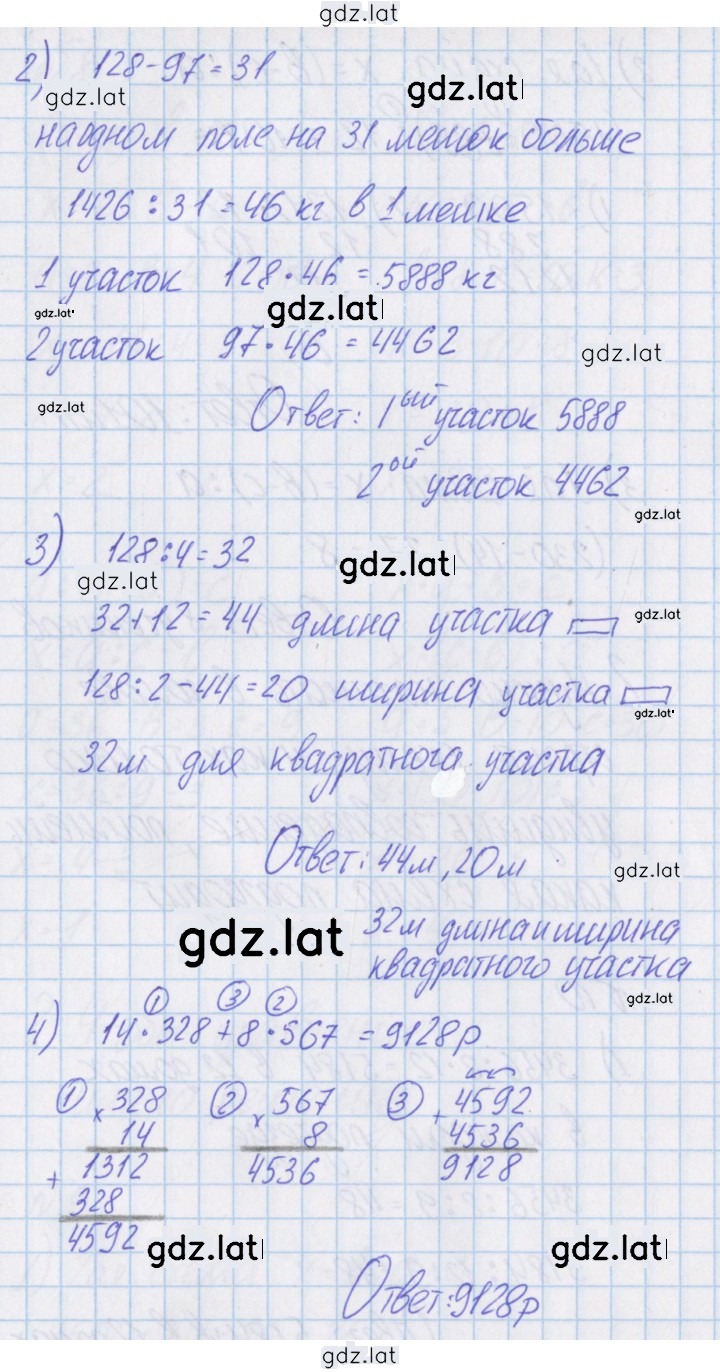 gdz.lat
2) 128-97=31
gdz.lat gdz.lat
на одном поле на 31 мешок больше
1426 : 31 = 46 кг в 1 мешке
1 участок 128·46 = 5888 кг
gdz.lat gdz.lat
2 участок 97·46 = 4462
gdz.lat
gdz.lat
Ответ: 1ый участок 5888
2ой участок 4462
gdz.lat
3) 128:4=32
gdz.lat gdz.lat
32+12=44 длина участка
gdz.lat
128:2-44=20 ширина участка
gdz.lat
32м для квадратного участка
Ответ: 44м, 20м
gdz.lat
gdz.lat
32м длина и ширина
квадратного участка
gdz.lat
① ③ ②
4) 14·328+8·567 = 9128р
① × 328 ② × 567 ③ + 4592
14 8 4536
+ 1312 4536 9128
328
4592
gdz.lat gdz.lat
Ответ: 9128р
gdz.lat